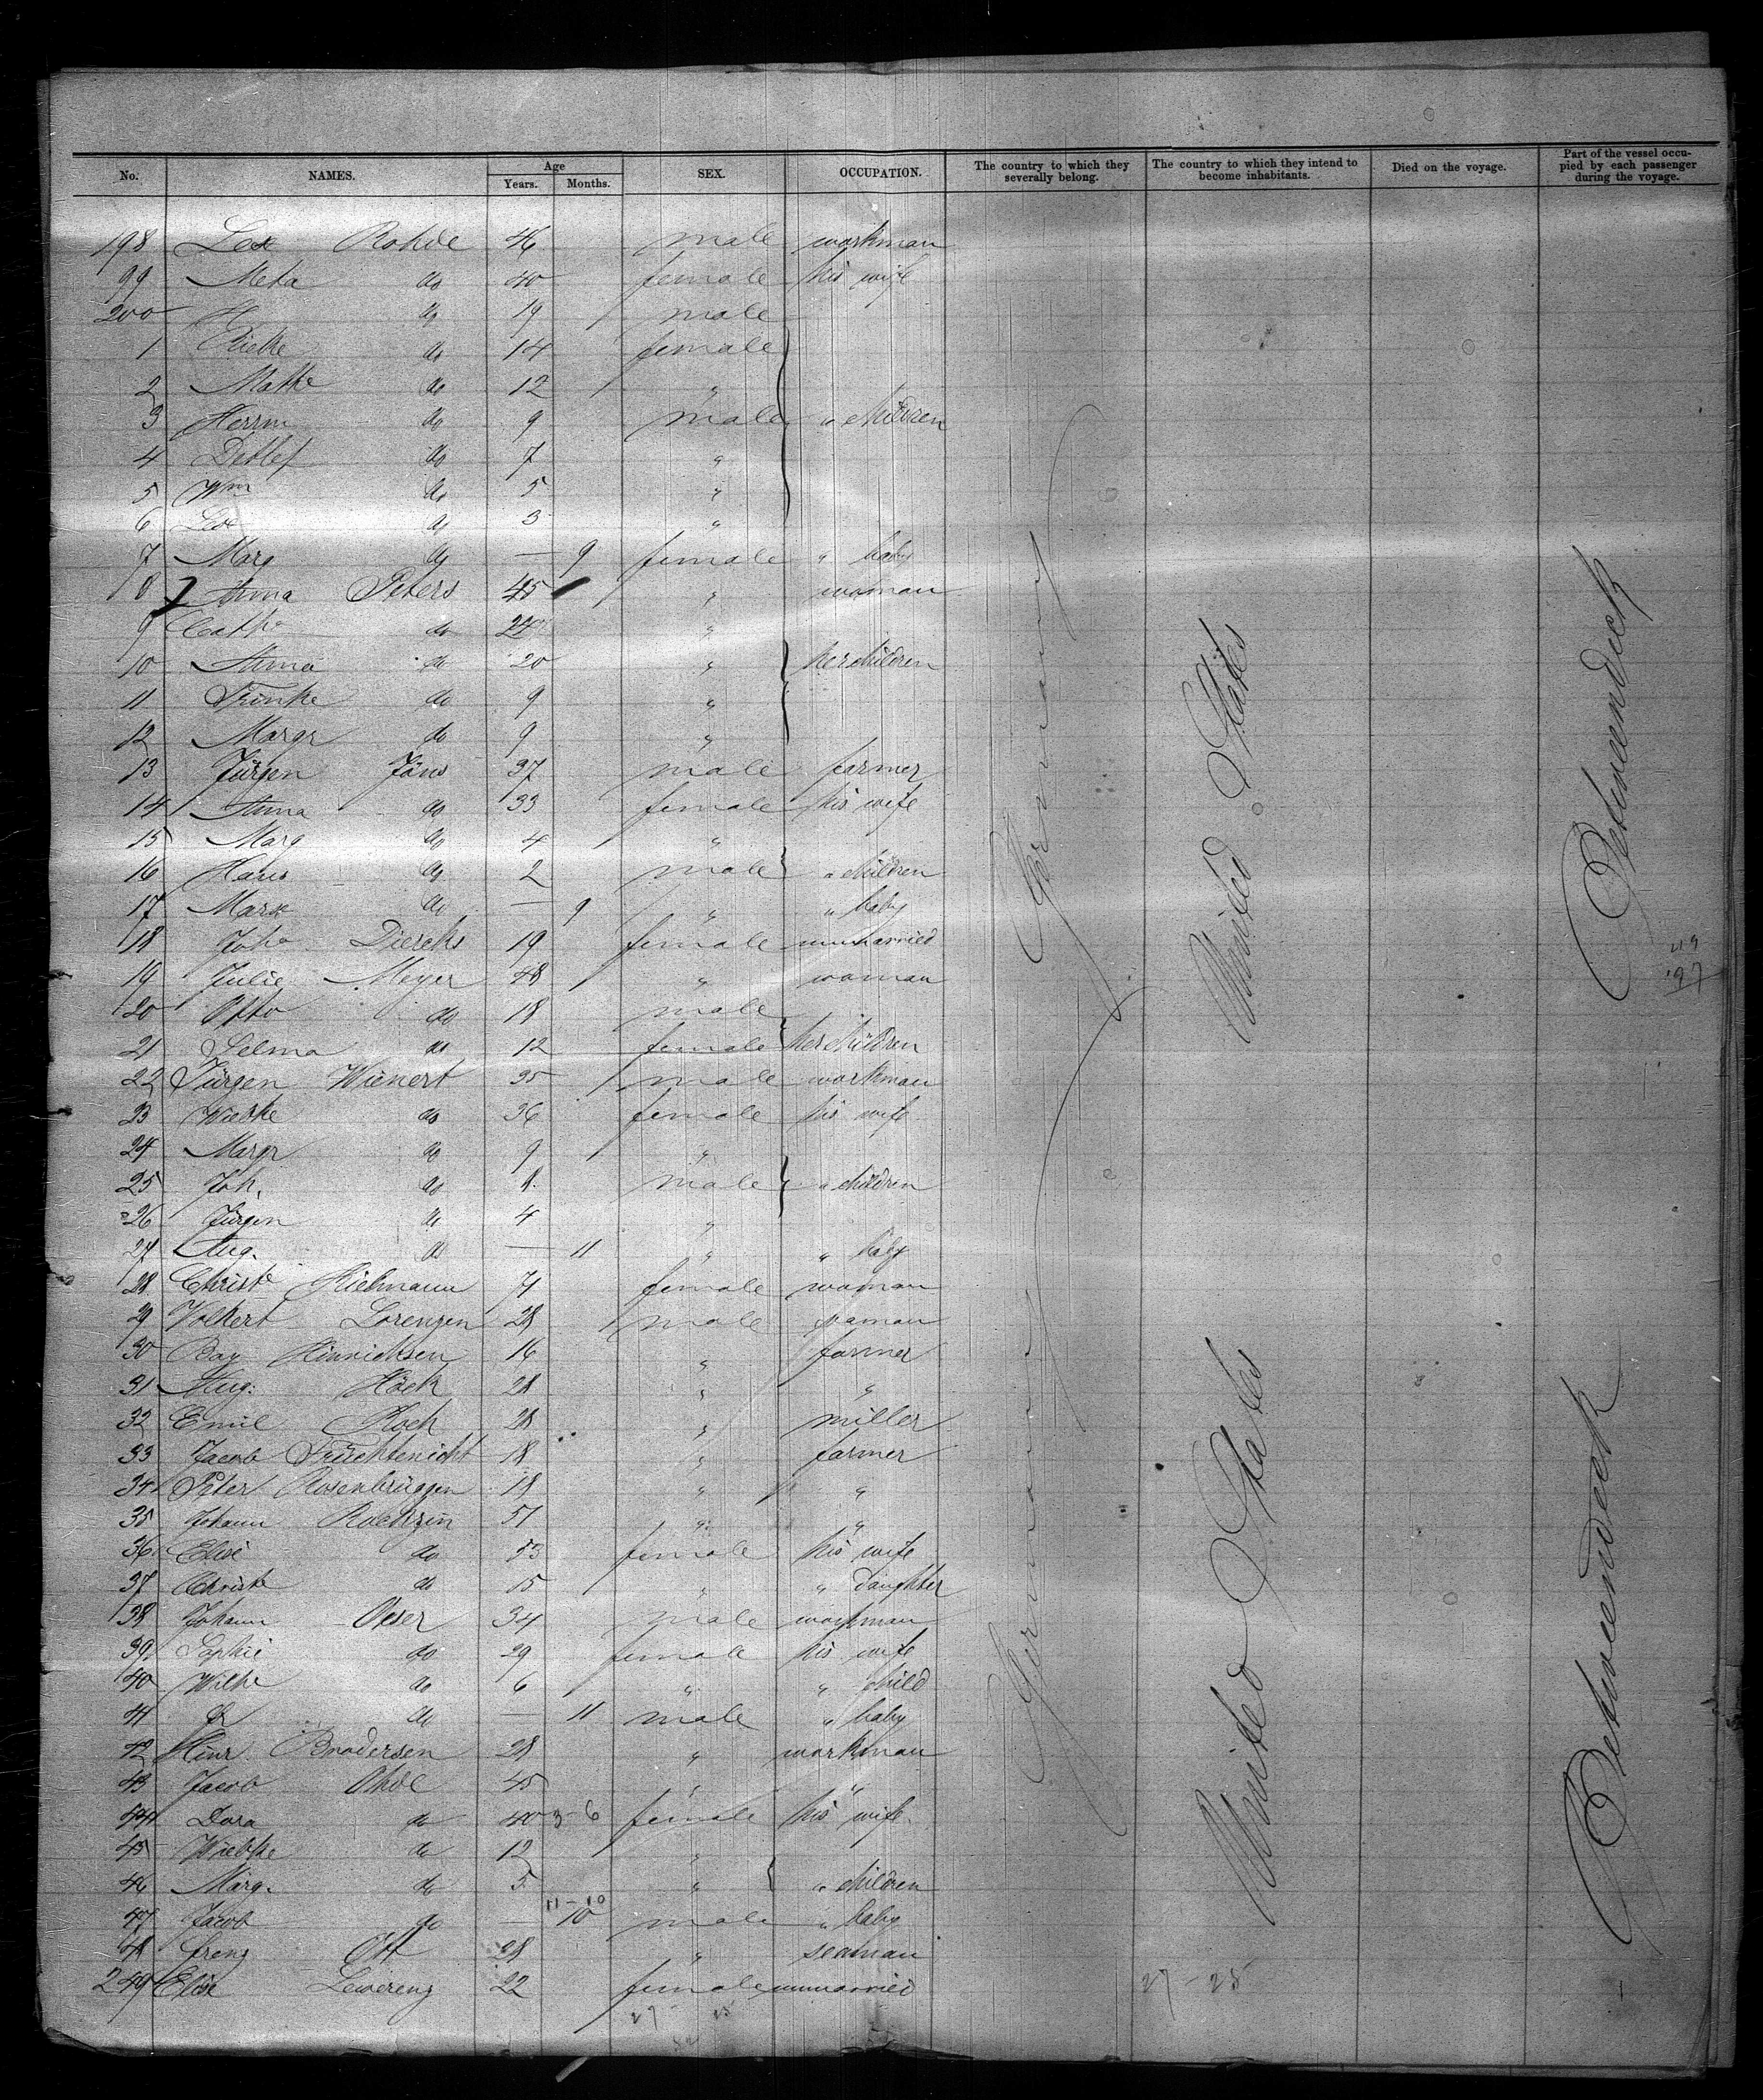 No. NAMES. Age Years. Months. SEX. OCCUPATION. The country to which they severally belong. The country to which they intend to become inhabitants. Died on the voyage. Part of the vessel occupied by each passenger during the voyage.
198 Rohde 46 male workman
99 Meta do 40 female his wife
200 H do 19 male
1 Rieke do 14 female
2 do 12 "
3 Herrm do 9 male " children
4 Detlef do 7 "
5 Wm do 5 "
6 do 3 "
7 Marg do — 9 female " baby
8 Anna Peters 45 " woman
9 Cathe do 24 "
10 Anna do 20 " her children
11 Trinke do 9 "
12 Margr do 9 "
13 Jürgen Jöns 37 male farmer
14 Anna do 33 female his wife
15 Marg do 4 "
16 Hans do 2 male " children
17 Marx do — 9 " " baby
18 Diercks 19 female unmarried
19 Julie Meyer 48 " woman
20 Otto do 18 male
21 Selma do 12 female her children
22 Jürgen Wienert 35 male workman
23 Wiebke do 36 female his wife
24 Margr do 9 "
25 Joh. do 8 male " children
26 Jürgen do 4 "
27 Aug. do — 11 " " baby
28 Christe 71 female woman
29 Volkert Lorenzen 28 male seaman
30 Boy Hinrichsen 16 " farmer
31 Aug. Höck 28 " "
32 Emil Koch 28 " miller
33 Jacob Früchtenicht 18 " farmer
34 Peter Rosenbrüggen 18 " "
35 Johann 51 " "
36 Elise do 53 female his wife
37 Christe do 15 " " daughter
38 Johann Oeser 34 male workman
39 Sophie do 29 female his wife
40 Wilhe do 6 " " child
41 do — 11 male " baby
42 Hinr. Brodersen 28 " workman
43 Jacob Ohde 45 " "
44 Dora do 40 3-6 female his wife
45 Wiebke do 12 "
46 Marg. do 5 " " children
11-10
47 Jacob do — 10 male " baby
48 Lrenz Ott 28 " seaman
249 Elise Lewerenz 22 female unmarried
Germany
United States
Betweendeck
97
Germany
United States
Betweendeck
27 25
27-25